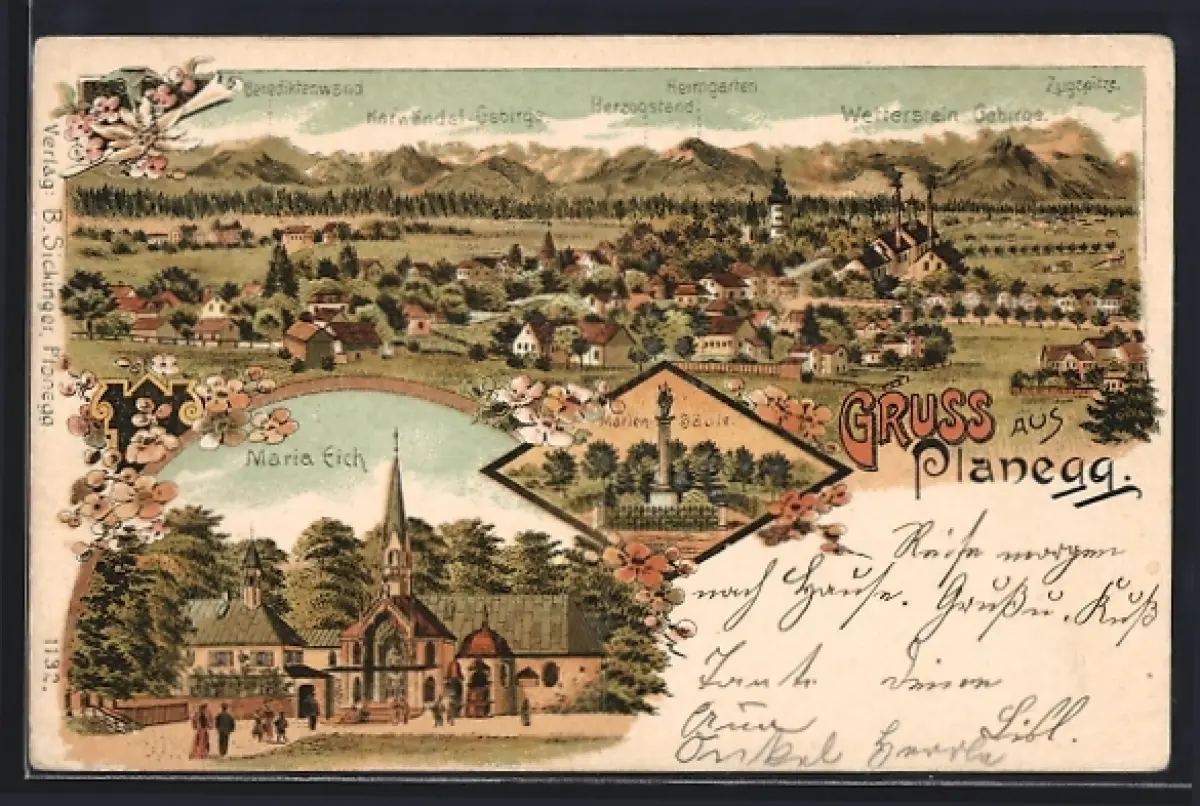 Benediktenwand
Heimgarten
Zugspitze.
Karwendel-Gebirge.
Herzogstand.
Wetterstein Gebirge.
Verlag: B. Sickinger, Planegg.
1132.
Maria Eich
Marien Säule.
GRUSS AUS
Planegg.
Reise morgen
nach Hause. Gruß u. Kuß
Tante
Onkel